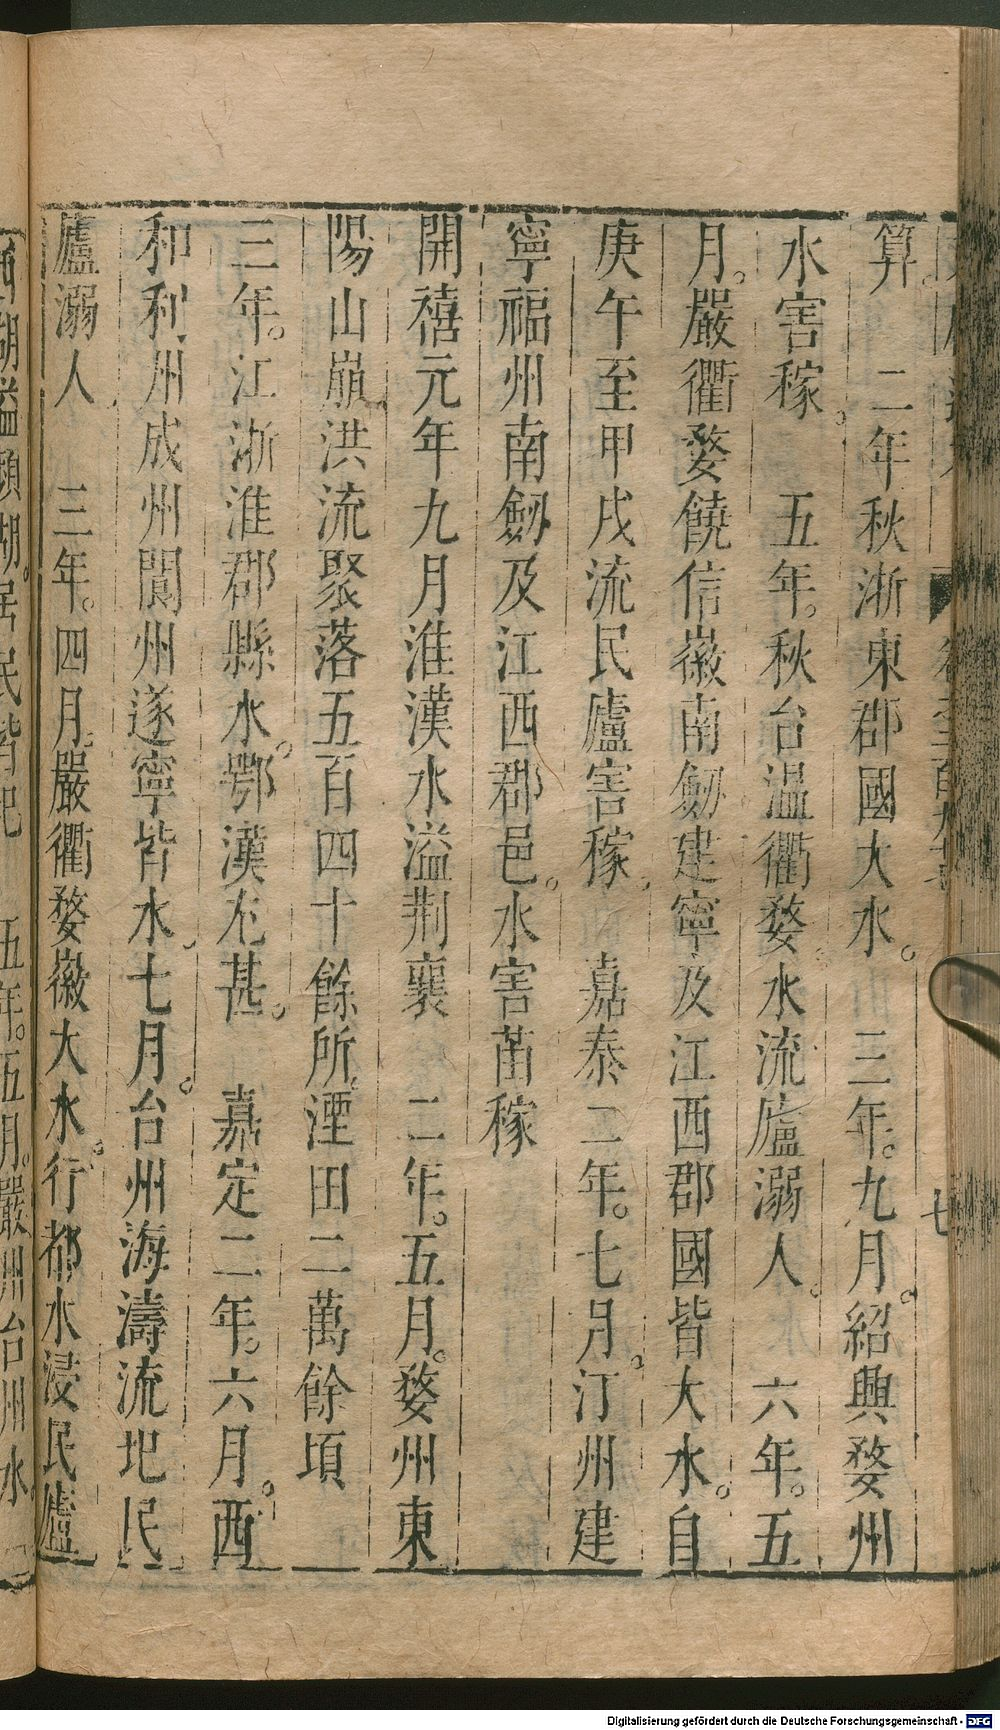 七
算 二年秋浙東郡國大水 三年九月紹興婺州
水害稼 五年秋台温衢婺水流廬溺人 六年五
月嚴衢婺饒信徽南劒建寧及江西郡國皆大水自
庚午至甲戌流民廬害稼 嘉泰二年七月汀州建
寧福州南劒及江西郡邑水害苗稼
開禧元年九月淮漢水溢荆襄 二年五月婺州東
陽山崩洪流聚落五百四十餘所湮田二萬餘頃
三年江浙淮郡縣水鄂漢尤甚 嘉定二年六月西
和利州成州閬州遂寧皆水七月台州海濤流圯民
廬溺人 三年四月嚴衢婺徽大水行都水浸民廬
湖溢瀕湖居民皆圯 五年五月嚴州台州水
Digitalisierung gefördert durch die Deutsche Forschungsgemeinschaft - DFG